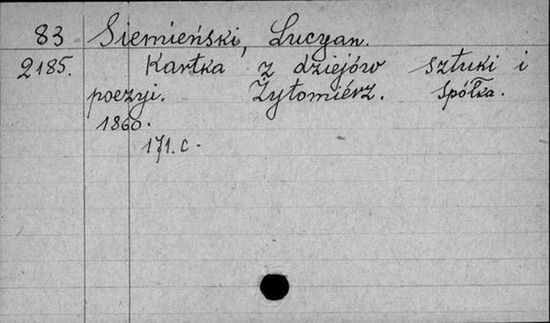 83 Siemieński, Lucyan.
2185. Kartka z dziejów sztuki i
poezyi. Żytomiérz. Spółka.
1860.
171. c.